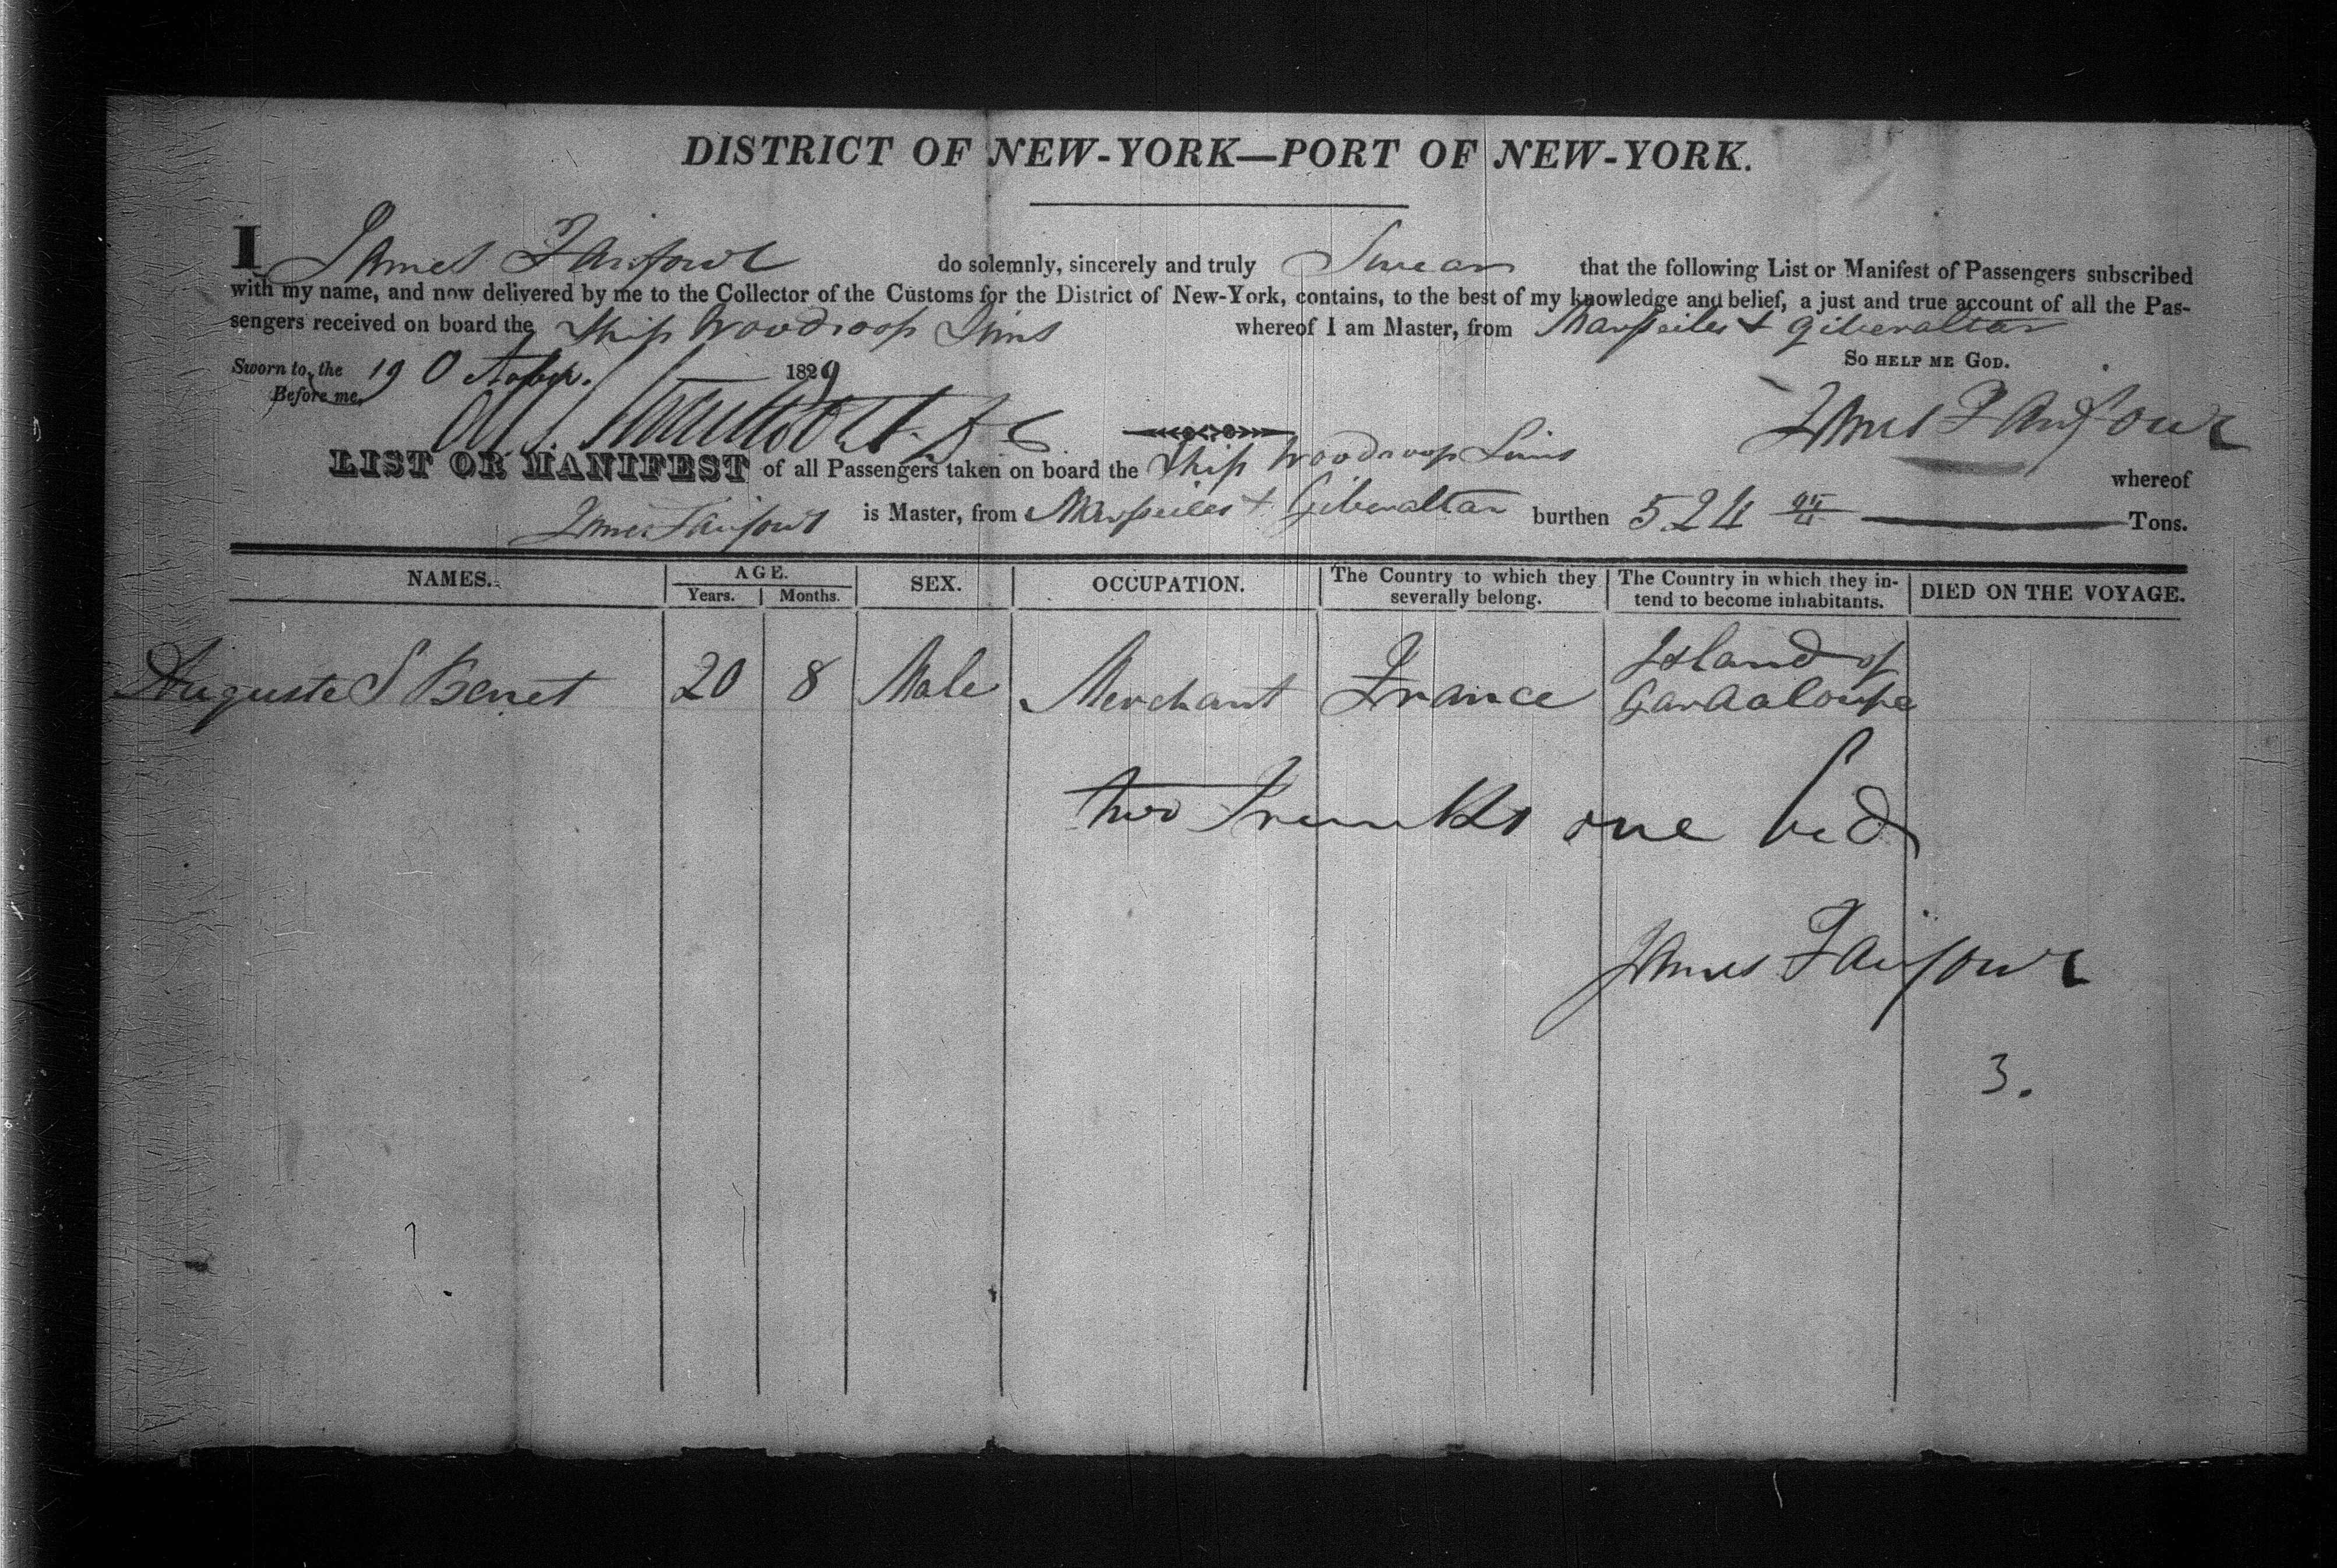 DISTRICT OF NEW-YORK—PORT OF NEW-YORK.
I James Fairfowl do solemnly, sincerely and truly Swear that the following List or Manifest of Passengers subscribed
with my name, and now delivered by me to the Collector of the Customs for the District of New-York, contains, to the best of my knowledge and belief, a just and true account of all the Pas-
sengers received on board the Ship Woodroop Sims whereof I am Master, from Marseiles + Giberaltar
So HELP ME GOD.
Sworn to, the 19 October. 1829
Before me,
James Fairfowl
LIST OR MANIFEST of all Passengers taken on board the Ship Woodroop Sims whereof
James Fairfowl is Master, from Marseiles + Giberaltar burthen 524 Tons.
NAMES. AGE. SEX. OCCUPATION. The Country to which they severally belong. The Country in which they in-tend to become inhabitants. DIED ON THE VOYAGE.
Years. Months.
Auguste S Benet 20 8 Male Merchant France Island of Gardaloupe
two Trunks one bed
James Fairfowl
3.